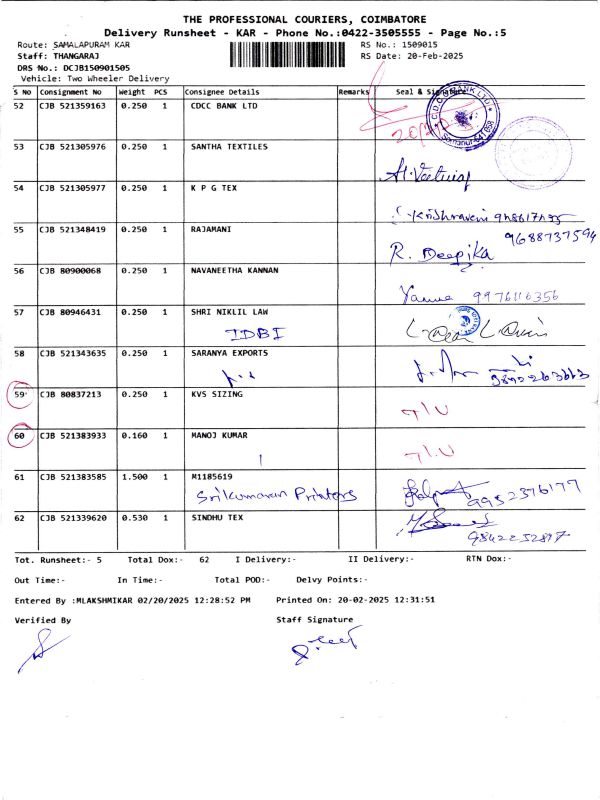 THE PROFESSIONAL COURIERS, COIMBATORE
Delivery Runsheet - KAR - Phone No.:0422-3505555 - Page No.:5
Route: SAMALAPURAM KAR RS No.: 1509015
Staff: THANGARAJ RS Date: 20-Feb-2025
DRS No.: DCJB150901505
Vehicle: Two Wheeler Delivery
S NO Consignment No Weight PCS Consignee Details Remarks Seal & Signature
52 CJB 521359163 0.250 1 CDCC BANK LTD
53 CJB 521305976 0.250 1 SANTHA TEXTILES
54 CJB 521305977 0.250 1 K P G TEX
55 CJB 521348419 0.250 1 RAJAMANI
9688737594
R. Deepika
56 CJB 80900068 0.250 1 NAVANEETHA KANNAN
9976116356
57 CJB 80946431 0.250 1 SHRI NIKLIL LAW
IDBI
58 CJB 521343635 0.250 1 SARANYA EXPORTS
59 CJB 80837213 0.250 1 KVS SIZING
60 CJB 521383933 0.160 1 MANOJ KUMAR
61 CJB 521383585 1.500 1 M1185619
Srikumaran Printers 9952376177
62 CJB 521339620 0.530 1 SINDHU TEX
Tot. Runsheet:- 5 Total Dox:- 62 I Delivery:- II Delivery:- RTN Dox:-
Out Time:- In Time:- Total POD:- Delvy Points:-
Entered By :MLAKSHMIKAR 02/20/2025 12:28:52 PM Printed On: 20-02-2025 12:31:51
Verified By Staff Signature